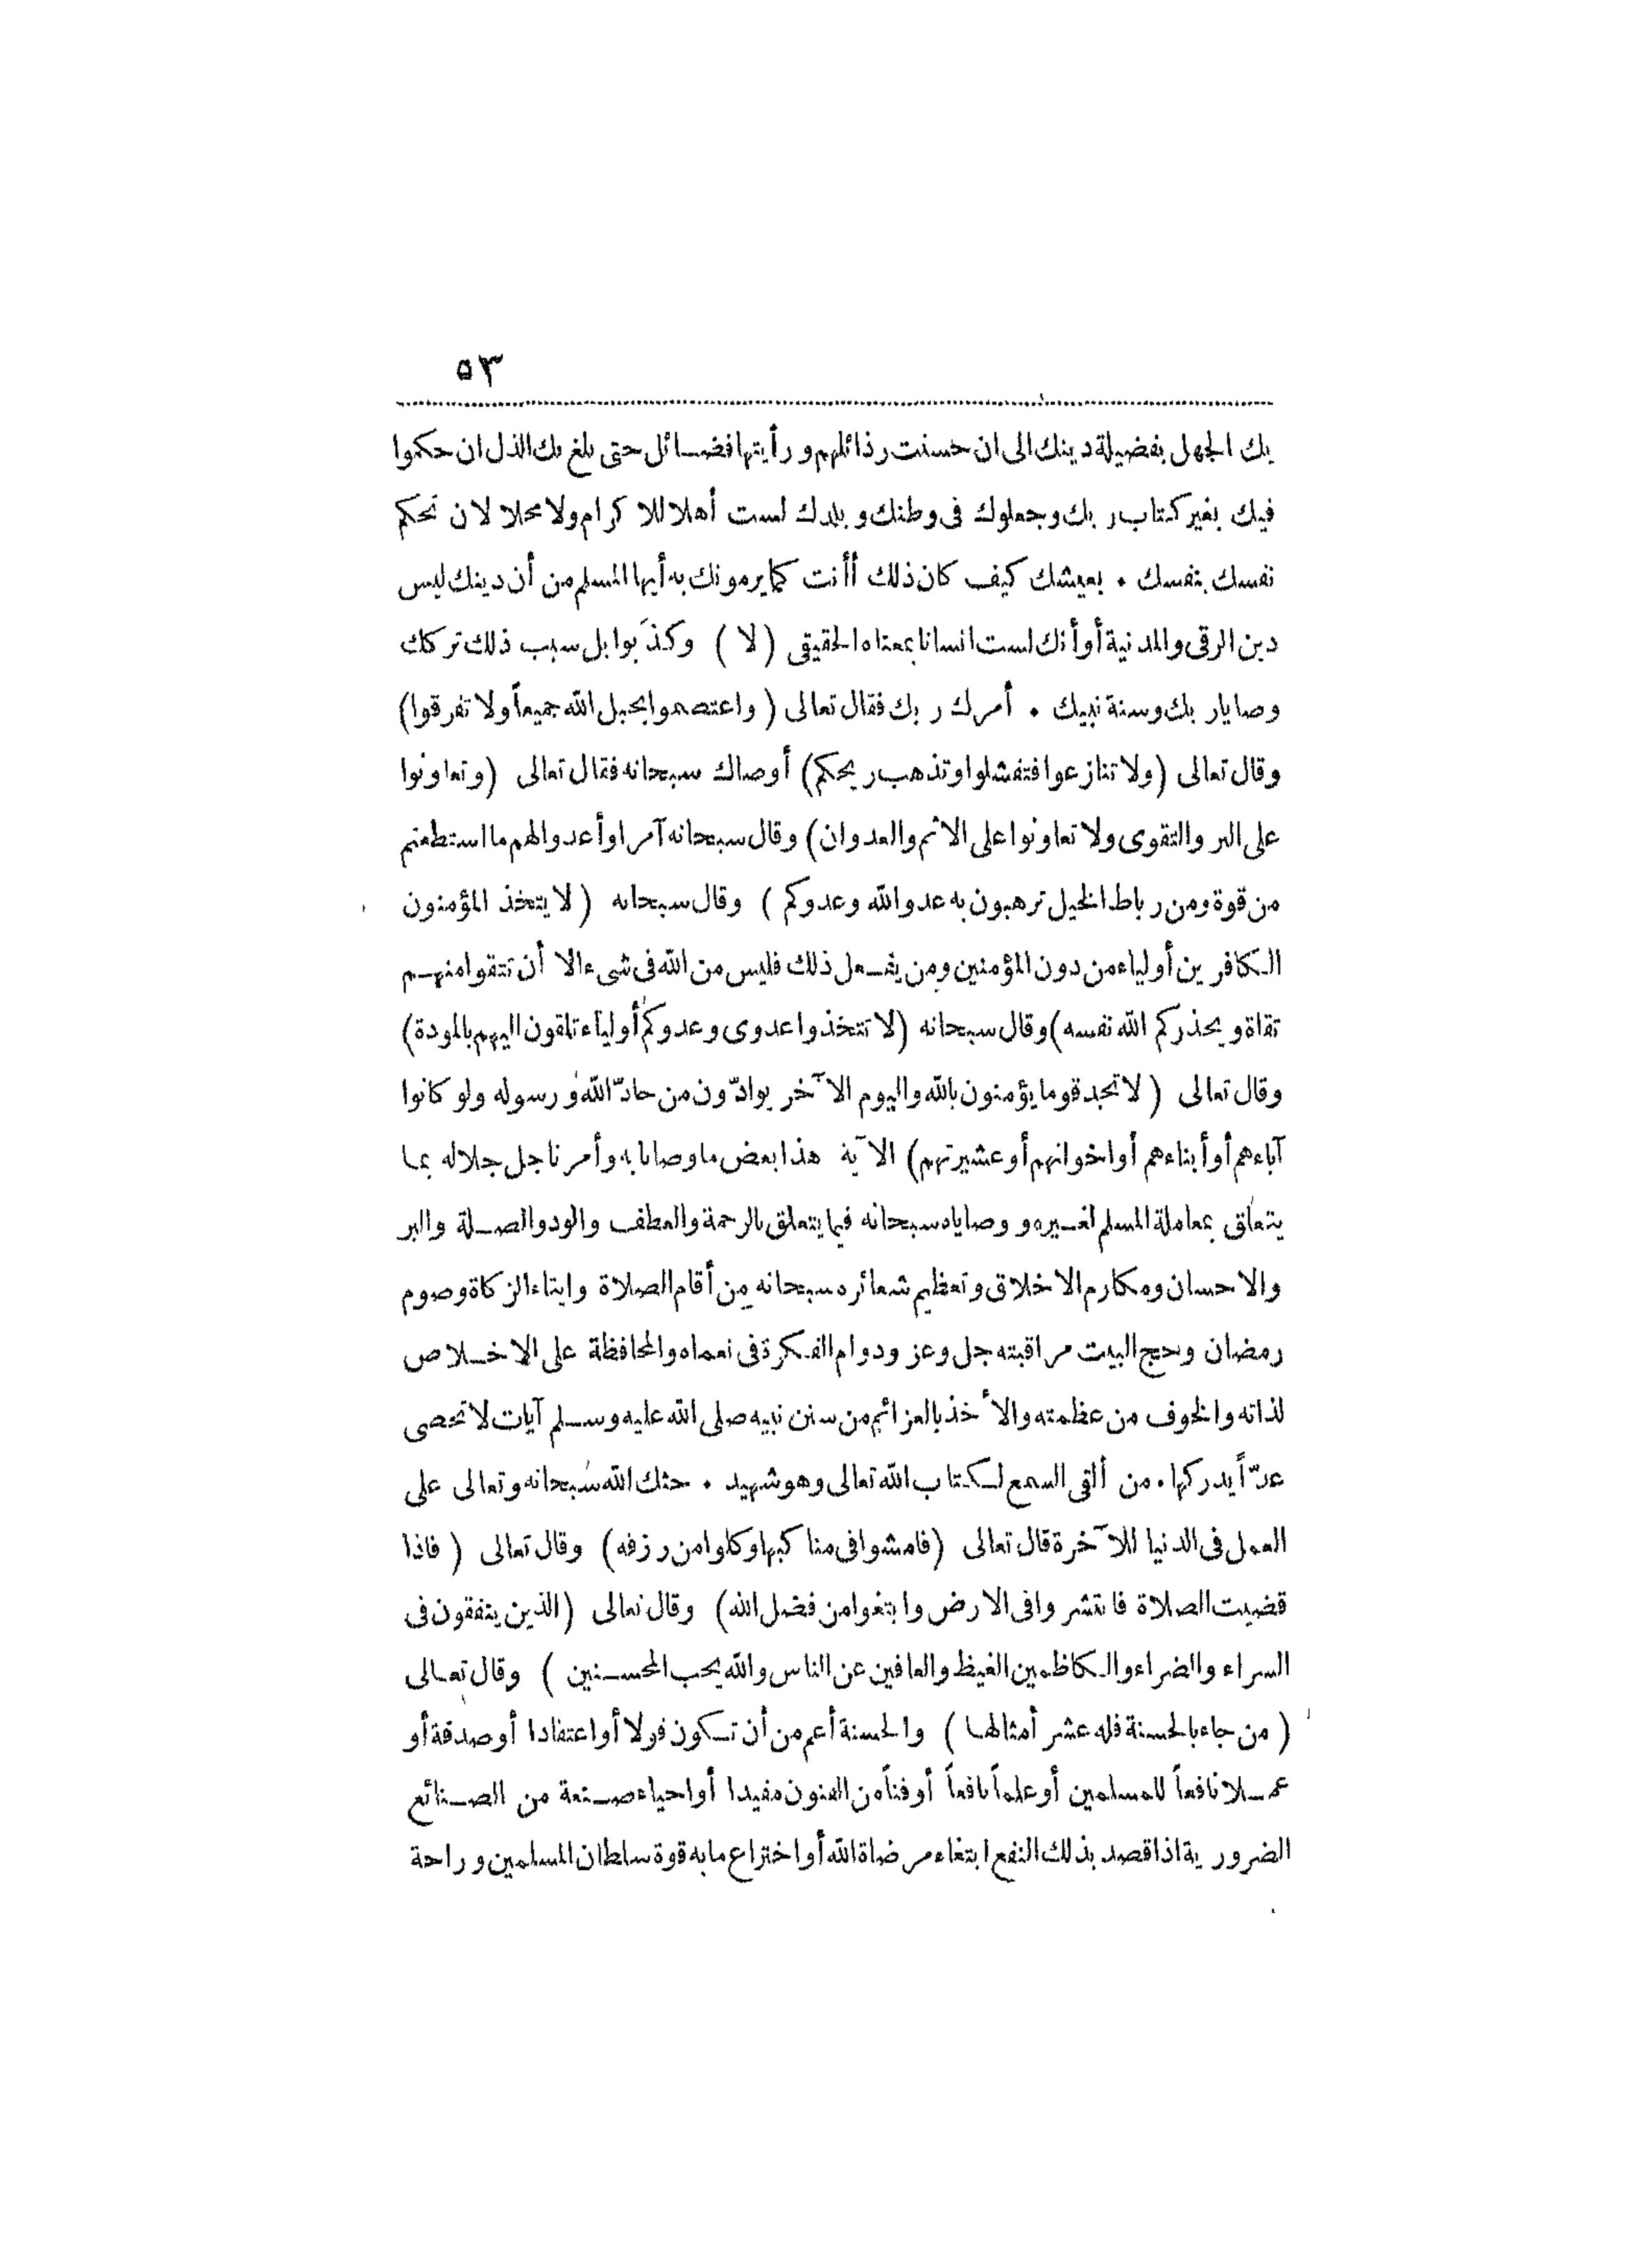 ٥٣
بك الجهل بفضيلة دينك الى ان حسنت رذائلهم ورأيتها فضائل حتى بلغ بك الذل ان حكموا
فيك بغير كتاب ربك وجعلوك فى وطنك وبلدك لست أهلا للاكرام ولا محلا لان تحكم
نفسك بنفسك . بعيشك كيف كان ذلك أأنت كما يرمونك به أيها المسلم من أن دينك ليس
دين الرقى والمدنية أو أنك لست انسانا بمعناه الحقيقى (لا) وكذبوا بل سبب ذلك تركك
وصايا ربك وسنة نبيك . أمرك ربك فقال تعالى (واعتصموا بحبل الله جميعاً ولا تفرقوا)
وقال تعالى (ولا تنازعوا فتفشلوا وتذهب ريحكم) أوصاك سبحانه فقال تعالى (وتعاونوا
على البر والتقوى ولا تعاونوا على الاثم والعدوان) وقال سبحانه آمرا وأعدوا لهم ما استطعتم
من قوة ومن رباط الخيل ترهبون به عدو الله وعدوكم) وقال سبحانه (لا يتخذ المؤمنون
الكافرين أولياء من دون المؤمنين ومن يفعل ذلك فليس من الله فى شىء الا أن تتقوا منهم
تقاة ويحذركم الله نفسه) وقال سبحانه (لا تتخذوا عدوى وعدوكم أولياء تلقون اليهم بالمودة)
وقال تعالى (لا تجد قوما يؤمنون بالله واليوم الآخر يوادّون من حادّ الله ورسوله ولو كانوا
آباءهم أو أبناءهم أو اخوانهم أو عشيرتهم) الآية هذا بعض ما وصانا به وأمرنا جل جلاله بما
يتعلق بمعاملة المسلم لغيره ووصاياه سبحانه فيما يتعلق بالرحمة والعطف والود والصلة والبر
والاحسان ومكارم الاخلاق وتعظيم شعائره سبحانه من أقام الصلاة وايتاء الزكاة وصوم
رمضان وحج البيت مراقبته جل وعز ودوام الفكرة فى نعماه والمحافظة على الاخلاص
لذاته والخوف من عظمته والأخذ بالعزائم من سنن نبيه صلى الله عليه وسلم آيات لا تحصى
عدّاً يدركها . من ألقى السمع لكتاب الله تعالى وهو شهيد . حثك الله سبحانه وتعالى على
العمل فى الدنيا للآخرة قال تعالى (فامشوا فى مناكبها وكلوا من رزقه) وقال تعالى (فاذا
قضيت الصلاة فانتشروا فى الارض وابتغوا من فضل الله) وقال تعالى (الذين ينفقون فى
السراء والضراء والكاظمين الغيظ والعافين عن الناس والله يحب المحسنين) وقال تعالى
(من جاء بالحسنة فله عشر أمثالها) والحسنة أعم من أن تكون قولا أو اعتقادا أو صدقة أو
عملا نافعاً للمسلمين أو علماً نافعاً أو فناً من الفنون مفيدا أو احياء صنعة من الصنائع
الضرورية اذا قصد بذلك النفع ابتغاء مرضاة الله أو اختراع ما به قوة سلطان المسلمين وراحة